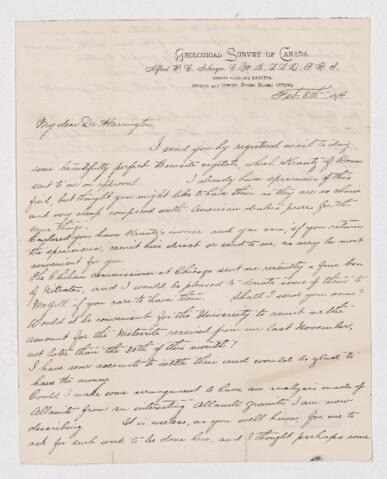 GEOLOGICAL SURVEY OF CANADA
Alfred R. C. Selwyn, C. M. G., L.L.D., F. R. S.
DEPUTY HEAD AND DIRECTOR.
MUSEUM AND OFFICE, SUSSEX STREET, OTTAWA.
Feb. 8th 1894
My dear Dr Harrington,
I send you by registered mail to day
some beautifully perfect crystals, which Krantz of Bonn
sent to me on approval. I already have specimens of this
find, but thought you might like to have them as they are so choice
and very cheap compared with American dealers prices for the
same things.
Enclosed you have Krantz's invoice and you can, if you return
the specimens, remit him direct or send to me, as may be most
convenient for you.
The Chilian Commissioner at Chicago sent me recently a fine box
of Nitrates, and I would be pleased to donate some of them to
McGill if you care to have them. Shall I send you some?
Would it be convenient for the University to remit me the
amount for the Meteorite received from me last November,
not later than the 20th of this month?
I have some accounts to settle then and would be glad to
have the money.
Could I make some arrangement to have an analysis made of
Allanite from an interesting Allanite granite I am now
describing. It is useless, as you well know, for me to
ask for such work to be done here, and I thought perhaps some